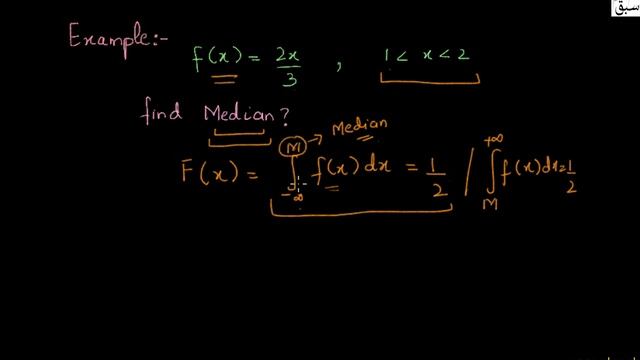 سبق
Example:-
f(x) = 2x/3 , 1 < x < 2
find Median?
Median
F(x) = ∫_{-∞}^{M} f(x) dx = 1/2 / ∫_{M}^{+∞} f(x)dx = 1/2